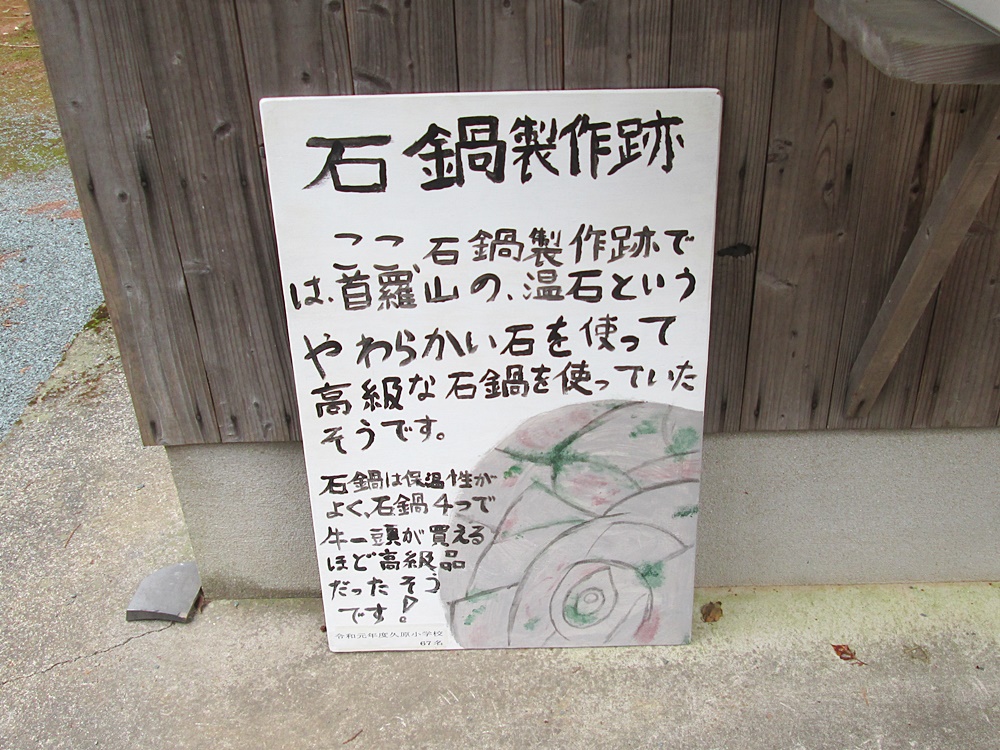 石鍋製作跡
ここ、石鍋製作跡で
は、首羅山の、温石という
やわらかい石を使って
高級な石鍋を使っていた
そうです。
石鍋は保温性が
よく、石鍋4つで
牛一頭が買える
ほど高級品
だったそう
です!
令和元年度久原小学校
67名